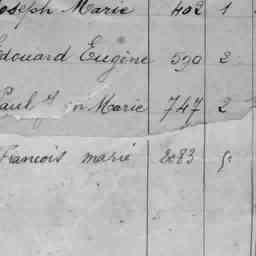 oseph Marie 402 1
Edouard Eugène 590 2
Paul Marie 747 2
François marie